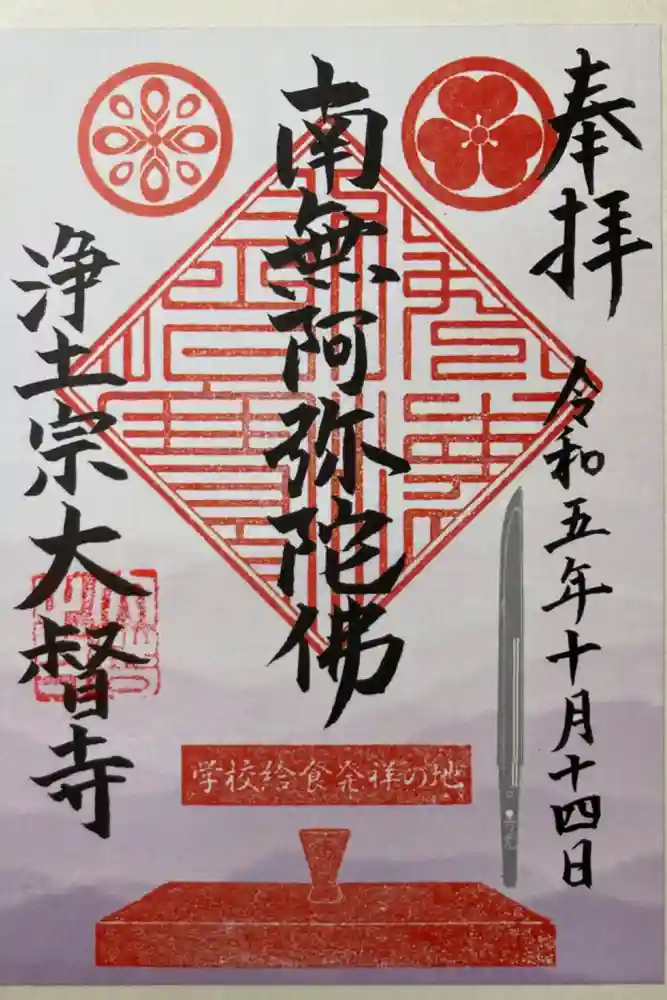 奉拝
令和五年十月十四日
南無阿弥陀佛
浄土宗大督寺
学校給食発祥の地